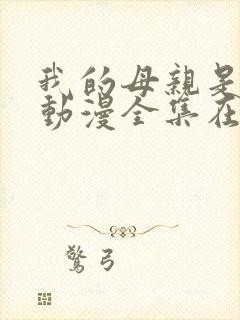 我的母親是
動漫全集在
驚弓